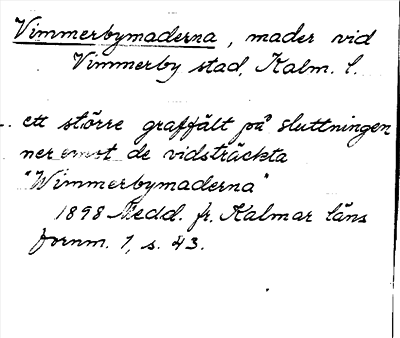 Vimmerbymaderna, mader vid
Vimmerby stad, Kalm. l.
ett större graffält på sluttningen
ner emot de vidsträckta
"Wimmerbymaderna"
1898 Medd. fr. Kalmar läns
fornm. 1, s. 43.